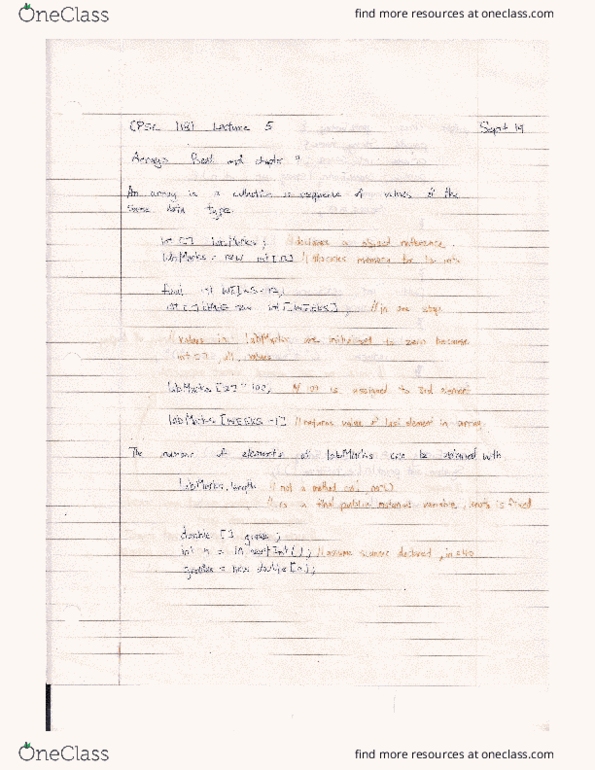 OneClass
find more resources at oneclass.com
CPSC 1181 Lecture 5 Sept 19
Arrays Read and chapter 7
An array is a collection in sequence of values of the
same data type.
int [] labMarks; // declares a object reference.
labMarks = new int[12] // allocates memory for 12 ints
final int WEEKS = 12;
int [] = new int [WEEKS]; // in one step
// values in labMarks are initialized to zero because
int values
labMarks [2] = 100; // 100 is assigned to 3rd element
labMarks [WEEKS -1] // returns value of last element in array.
The number of elements of labMarks can be obtained with
labMarks.length // not a method
// is a final public instance variable, is fixed
double [] ;
int n = in.nextInt(); // assume scanner declared, in
= new double[n];
OneClass
find more resources at oneclass.com